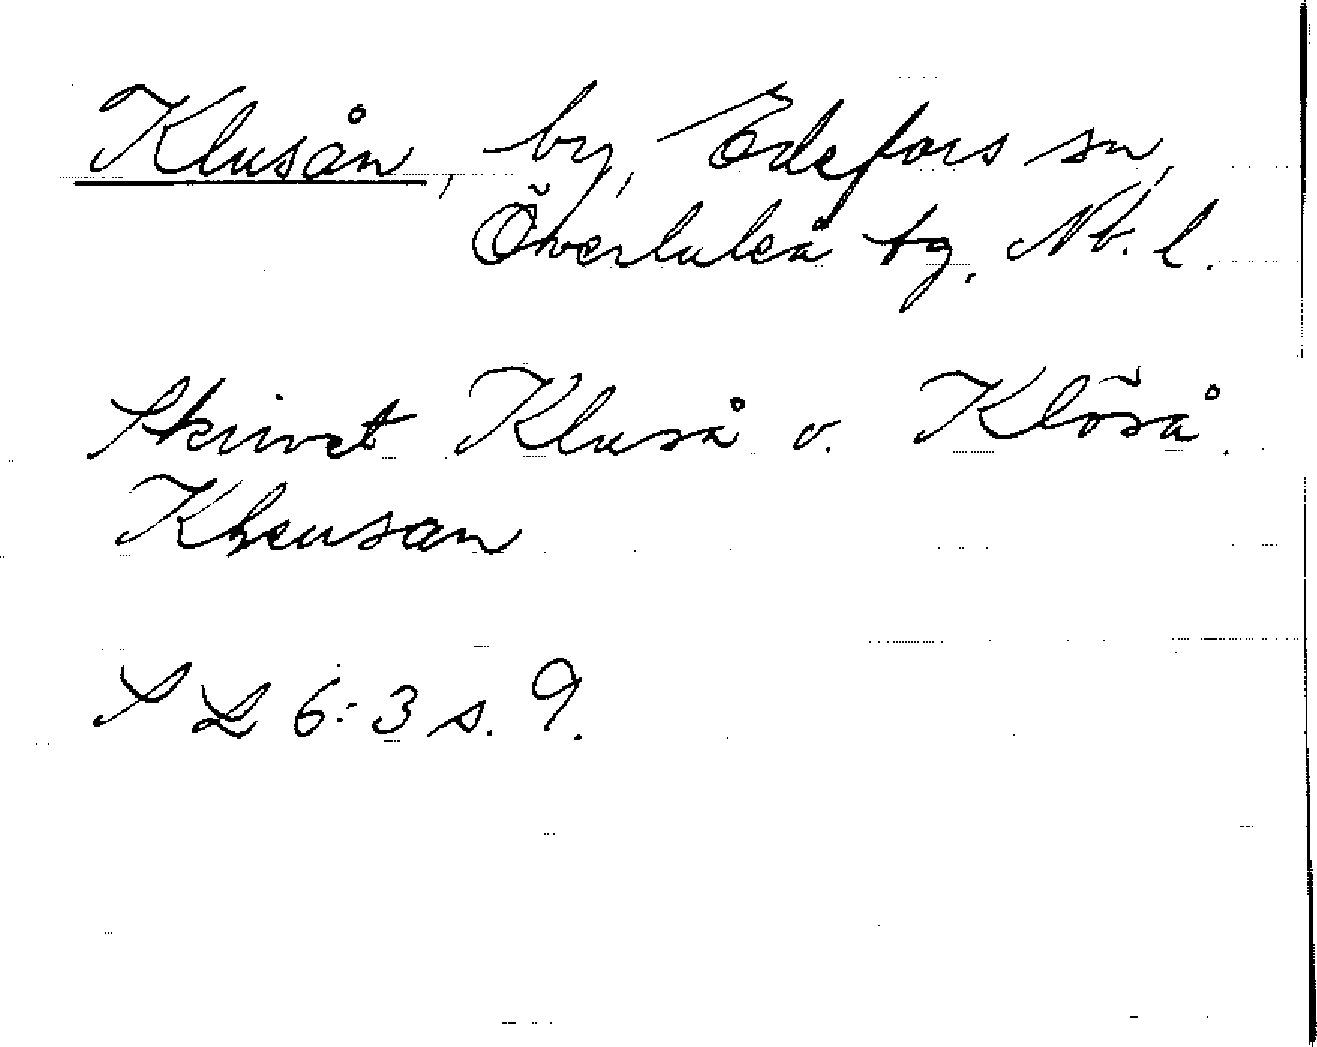 Klusån, by, Edefors sn,
Överluleå tg, Nb. l.
Skrivet Kluså o. Klöså.
Kheusan
S L 6:3 s. 9.